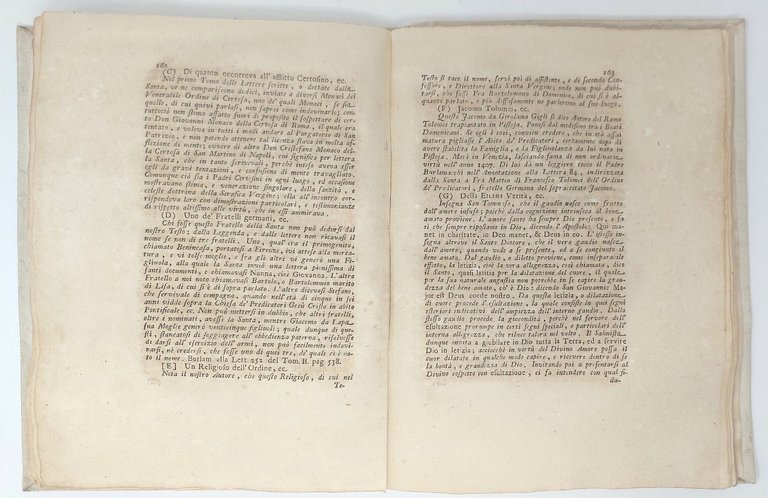 162
(C) Di quanto occorreva all' afflitto Certosino, ec.
Nel primo Tomo delle Lettere scritte, o dettate dalla
Santa, ve ne compariscono dodici, inviate a diversi Monaci del
Venerabile Ordine di Certosa, uno de' quali Monaci, se sia
quello, di cui quivi parlasi, non saprei come indovinarlo; con
tuttociò non stimo affatto fuori di proposito il sospettare di cer-
to Don Giovanni Monaco della Certosa di Roma, il quale era
tentato, e voleva in tutti i modi andare al Purgatorio di San
Patrizio, e non potendo ottenere tal licenza stava in molta af-
flizione di mente; ovvero di altro Don Cristofano Monaco del-
la Certosa di San Martino di Napoli, cui significa per lettera
la Santa, che in tanto scrivevali, perchè inteso aveva esser
egli da gravi tentazioni, e confusione di mente travagliato.
Comunque ciò sia i Padri Certosini in ogni luogo, ed occasione
mostravano stima, e venerazione singulare, della santità, e
celeste dottrina della Serafica Vergine; ella all' incontro cor-
rispondeva loro con dimostrazioni particolari, e testimonianze
di rispetto altissimo alle virtù, che in essi ammirava.
(D) Uno de' Fratelli germani, ec.
Chi fosse questo Fratello della Santa non può dedursi dal
nostro Testo; dalla Leggenda, e dalle lettere non ricavasi il
nome se non di tre fratelli. Uno, qual'era il primogenito,
chiamato Benincasa, portatosi a Firenze, ivi attese alla merca-
tura, e vi tolse moglie, e fra gli altri vi generò una Fi-
gliuola, alla quale la Santa inviò una lettera pienissima di
santi documenti, e chiamavasi Nanna, cioè Giovanna. L'altro
Fratello a noi noto chiamavasi Bartolo, o Bartolommeo marito
di Lisa, di cui si è di sopra parlato. L'altro dicevasi Stefano,
che servivale di compagno, quando nell'età di cinque in sei
anni vidde sopra la Chiesa de' Predicatori Gesù Cristo in abito
Pontificale, ec. Non può mettersi in dubbio, che altri fratelli,
oltre i nominati, avesse la Santa, mentre Giacomo da Lapa
sua Moglie generò venticinque figliuoli; quale dunque di que-
sti, stancatosi di soggiacere all' obbedienza paterna, risolvesse
di darsi all' esercizio dell' armi, non può facilmente indovi-
narsi, nè credersi, che fosse uno di quei tre, de' quali ci è no-
to il nome. Burlam. alla Lett. 252. del Tom. II. pag. 538.
[E] Un Religioso dell' Ordine, ec.
Nota il nostro Autore, che questo Religioso, di cui nel
Te-
163
Testo si tace il nome, servì poi di assistente, e di secondo Con-
fessore, o Direttore alla Santa Vergine; onde non può dubi-
tarsi, che fosse Fra Bartolommeo di Domenico, di cui si è al-
quanto parlato, e più diffusamente ne parleremo al suo luogo.
(F) Jacomo Tolomei, ec.
Questo Jacomo da Girolamo Gigli si dice Autore del Ramo
Tolomei trapiantato in Pistoja. Ponesi dal medesimo tra i Beati
Domenicani. Se egli è così, convien credere, che in età assai
matura pigliasse l' Abito de' Predicatori, certamente dopo di
avere stabilita la Famiglia, e la Figliuolanza da lui nata in
Pistoja. Morì in Venezia, lasciando fama di non ordinarie
virtù nell' anno 1407. Di lui dà un leggiero tocco il Padre
Burlamacchi nell' Annotazione alla Lettera 84. indirizzata
dalla Santa a Fra Matteo di Francesco Tolomei dell' Ordine
de' Predicatori, fratello Germano del sopraccitato Jacomo.
(G) Della Eterna Verità, ec.
Insegna San Tommaso, che il gaudio nasce come frutto
dall' amore infuso; poichè dalla cognizione intrinseca al bene
amato proviene. L' amore santo ha sempre Dio presente, e fa
sì che sempre riposiamo in Dio, dicendo l' Apostolo: Qui ma-
net in charitate, in Deo manet, & Deus in eo. L' istesso in-
segna altrove il Santo Dottore, che il vero gaudio nasce
dall' amore, quando vede a se presente, ed a se congiunto il
bene amato. Dal gaudio, e diletto proviene, come inseparabile
effetto, la letizia, cioè la vera allegrezza, così chiamata, dice
il Santo, quasi latitia per la dilatazione del cuore, il quale
per la sua naturale angustia non potrebbe in se capire la gran-
dezza del bene amato, ch' è Dio; dicendo San Giovanni: Ma-
jor est Deus corde nostro. Da questa letizia, e dilatazione,
di cuore procede l' esultazione, la quale consiste in quei segni
esteriori indicativi dell' ampiezza dell' interno gaudio. Dallo
stesso gaudio procede la giocondità, perchè nel fervore dell'
esultazione prorompe in certi segni speciali, e particolari dell'
interna allegrezza, che ridice talora nel volto. Il Salmista
dunque invita a giubilare in Dio tutta la Terra, ed a servire
Dio in letizia; acciocchè in virtù del Divino Amore possa il
cuor dilatato in qualche modo capire, e ricevere dentro di se
la bontà, e grandezza di Dio. Invitando poi a presentarsi al
Divino cospetto con esultazione, ci fa intendere con qual si-
du-